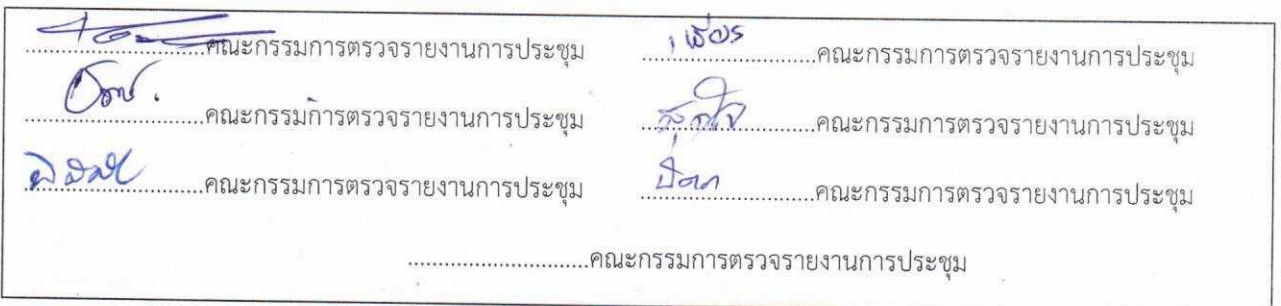 .............................คณะกรรมการตรวจรายงานการประชุม เพียร .............................คณะกรรมการตรวจรายงานการประชุม
.............................คณะกรรมการตรวจรายงานการประชุม สุดใจ .............................คณะกรรมการตรวจรายงานการประชุม
.............................คณะกรรมการตรวจรายงานการประชุม .............................คณะกรรมการตรวจรายงานการประชุม
.............................คณะกรรมการตรวจรายงานการประชุม